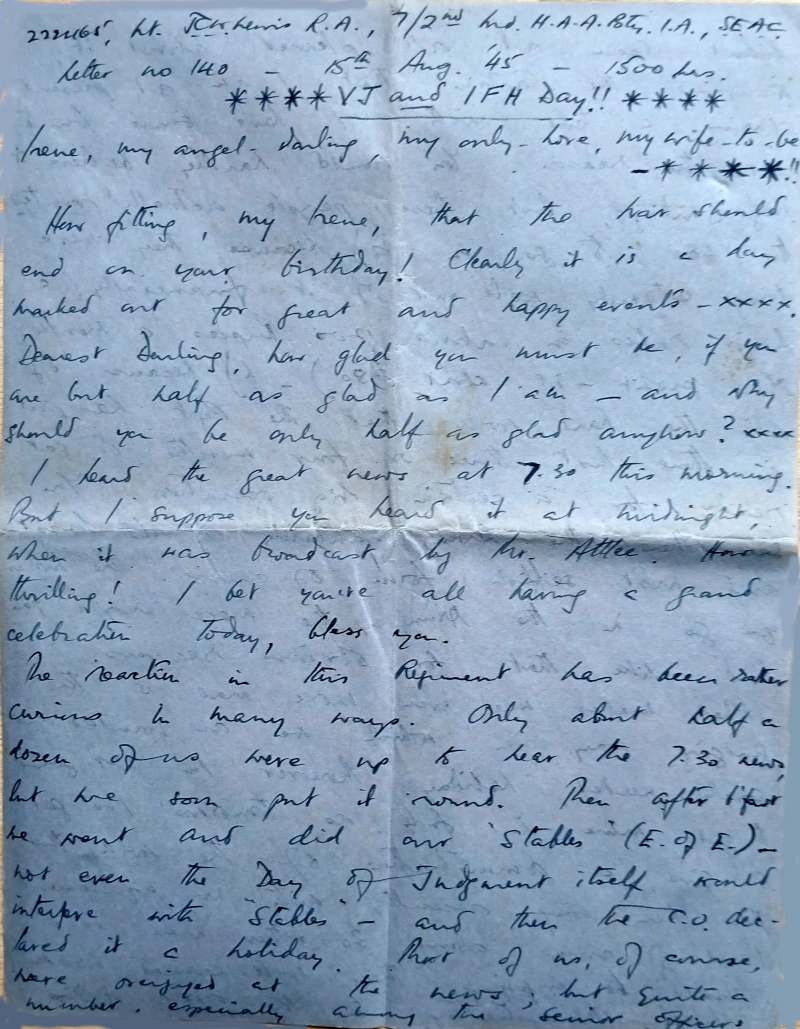 Lt. J.C.W. Lewis R.A., 7/2nd Ind. H.A.A. Bty. I.A., SEAC
Letter no 140 – 15th Aug. '45 – 1500 hrs.
**** VJ and IFH Day!! ****
Irene, my angel-darling, my only-love, my wife-to-be
– ****!!
How fitting, my Irene, that the war should
end on your birthday! Clearly it is a day
marked out for great and happy events – xxxx.
Dearest Darling, how glad you must be, if you
are but half as glad as I am – and why
should you be only half as glad anyhow? xxxx
I heard the great news at 7.30 this morning.
But I suppose you heard it at midnight,
when it was broadcast by Mr. Attlee. How
thrilling! I bet you're all having a grand
celebration today, bless you.
The reaction in this Regiment has been rather
curious in many ways. Only about half a
dozen of us were up to hear the 7.30 news,
but we soon put it round. Then after b'fast
we went and did our "Stables" (E. of E.) –
not even the Day of Judgment itself would
interfere with "Stables" – and then the C.O. dec-
lared it a holiday. Most of us, of course,
were overjoyed at the news; but quite a
number, especially among the senior officers